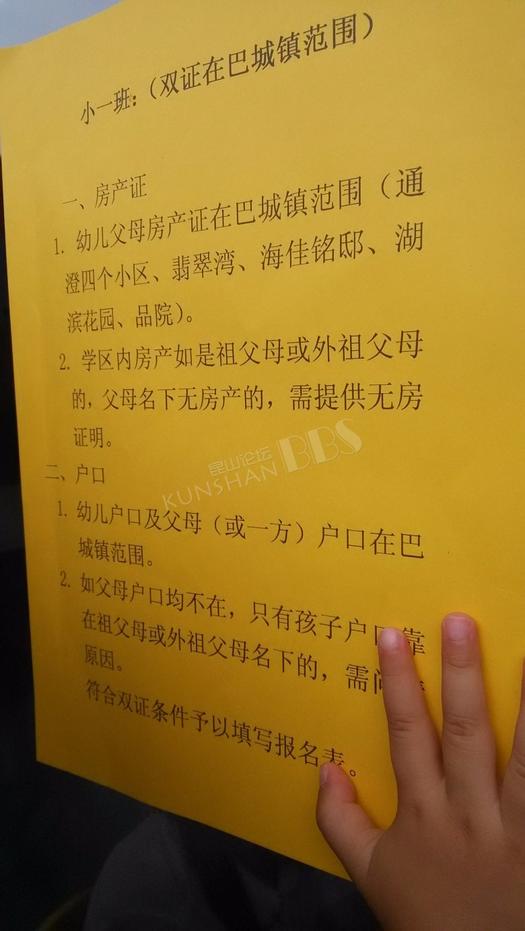 小一班：（双证在巴城镇范围）
一、房产证
1. 幼儿父母房产证在巴城镇范围（通
澄四个小区、翡翠湾、海佳铭邸、湖
滨花园、品院）。
2. 学区内房产如是祖父母或外祖父母
的，父母名下无房产的，需提供无房
证明。
昆山论坛
KUNSHAN BBS
二、户口
1. 幼儿户口及父母（或一方）户口在巴
城镇范围。
2. 如父母户口均不在，只有孩子户口靠
在祖父母或外祖父母名下的，需问
原因。
符合双证条件予以填写报名表。